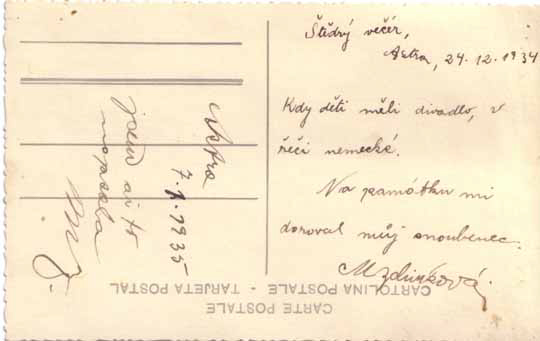 Štědrý večer,
Astra, 24.12.1934
Kdy děti měli divadlo, v
řéči nemecké.
Na památku mi
daroval můj snoubenec.
Astra
7.1.1935
jsem si to
napsala
CARTE POSTALE
CARTOLINA POSTALE - TARJETA POSTAL